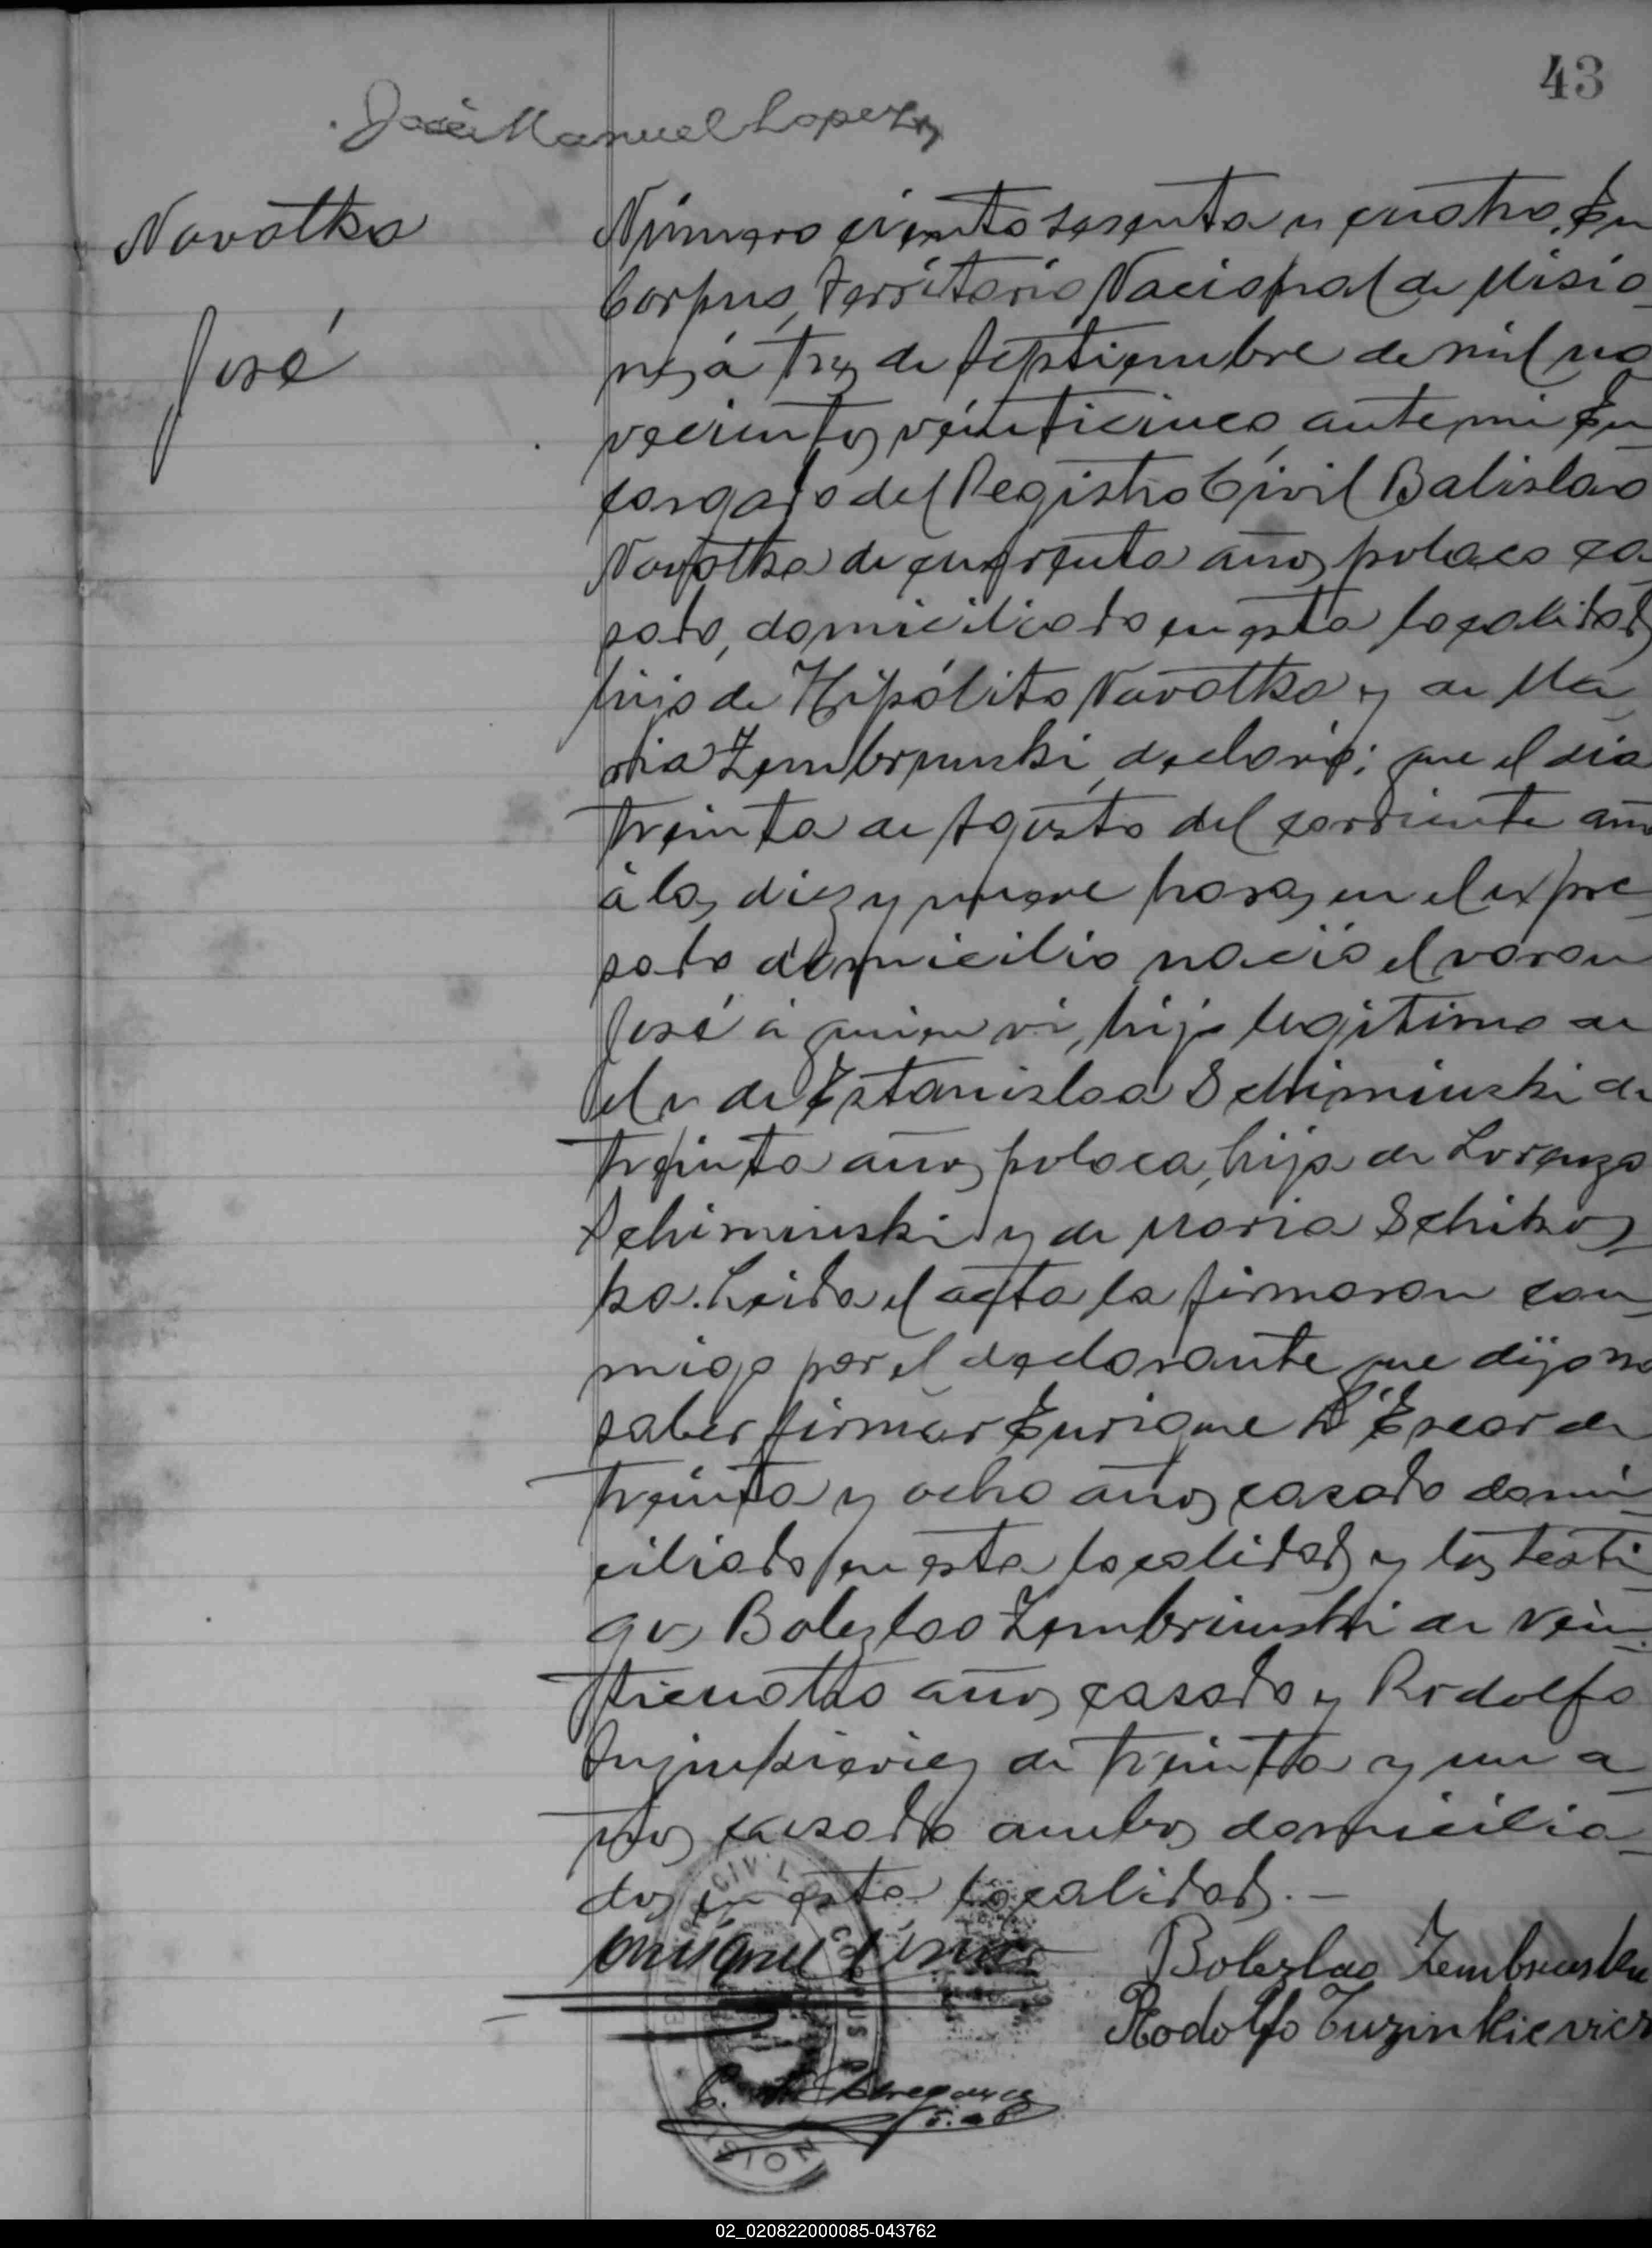 43
José Manuel Lopez
Navotka
José
Número ciento sesenta y cuatro. En
Corpus, Territorio Nacional de Misio
nes á tres de Septiembre de mil no
vecientos veinticinco, ante mi En
cargado del Registro Civil Balislao
Navotka de cuarenta años polaco ca
sado, domiciliado en esta localidad
hijo de Hipólito Navotka y de Ma
ria Zembrunski, declaró; que el dia
treinta de Agosto del corriente año
á las diez y nueve horas en el expre
sado domicilio nació el varon
José á quien vi, hijo legitimo de
el y de Estanislaa Schiminski de
treinta años polaca, hija de Lorenzo
Schiminski y de Maria Schikos
ka. Leida el acta la firmaron con
migo por el declarante que dijo no
saber firmar Enrique de
treinta y ocho años casado domi
ciliado en esta localidad y los testi
gos Boleslao Zembrinski de vein
ticuatro años casado y Rodolfo
de treinta y un a
ños casado ambos domicilia
dos en esta localidad.—
Boleslao Zembruski
Rodolfo Tuzinkievicz
CIVIL CORPUS
MISION
02_020822000085-043762